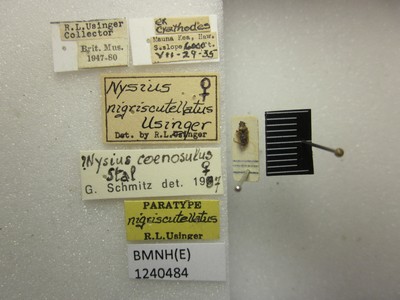 R.L.Usinger
Collector
Brit. Mus.
1947-80
ex
Mauna Kea, Haw.
S.slope 6000 ft.
VII-29-35
Nysius ♀
nigriscutellatus
Usinger
Det. by R.L.Usinger
?Nysius coenosulus
Stal ♀
G. Schmitz det. 1967
PARATYPE
nigriscutellatus
R.L.Usinger
BMNH(E)
1240484